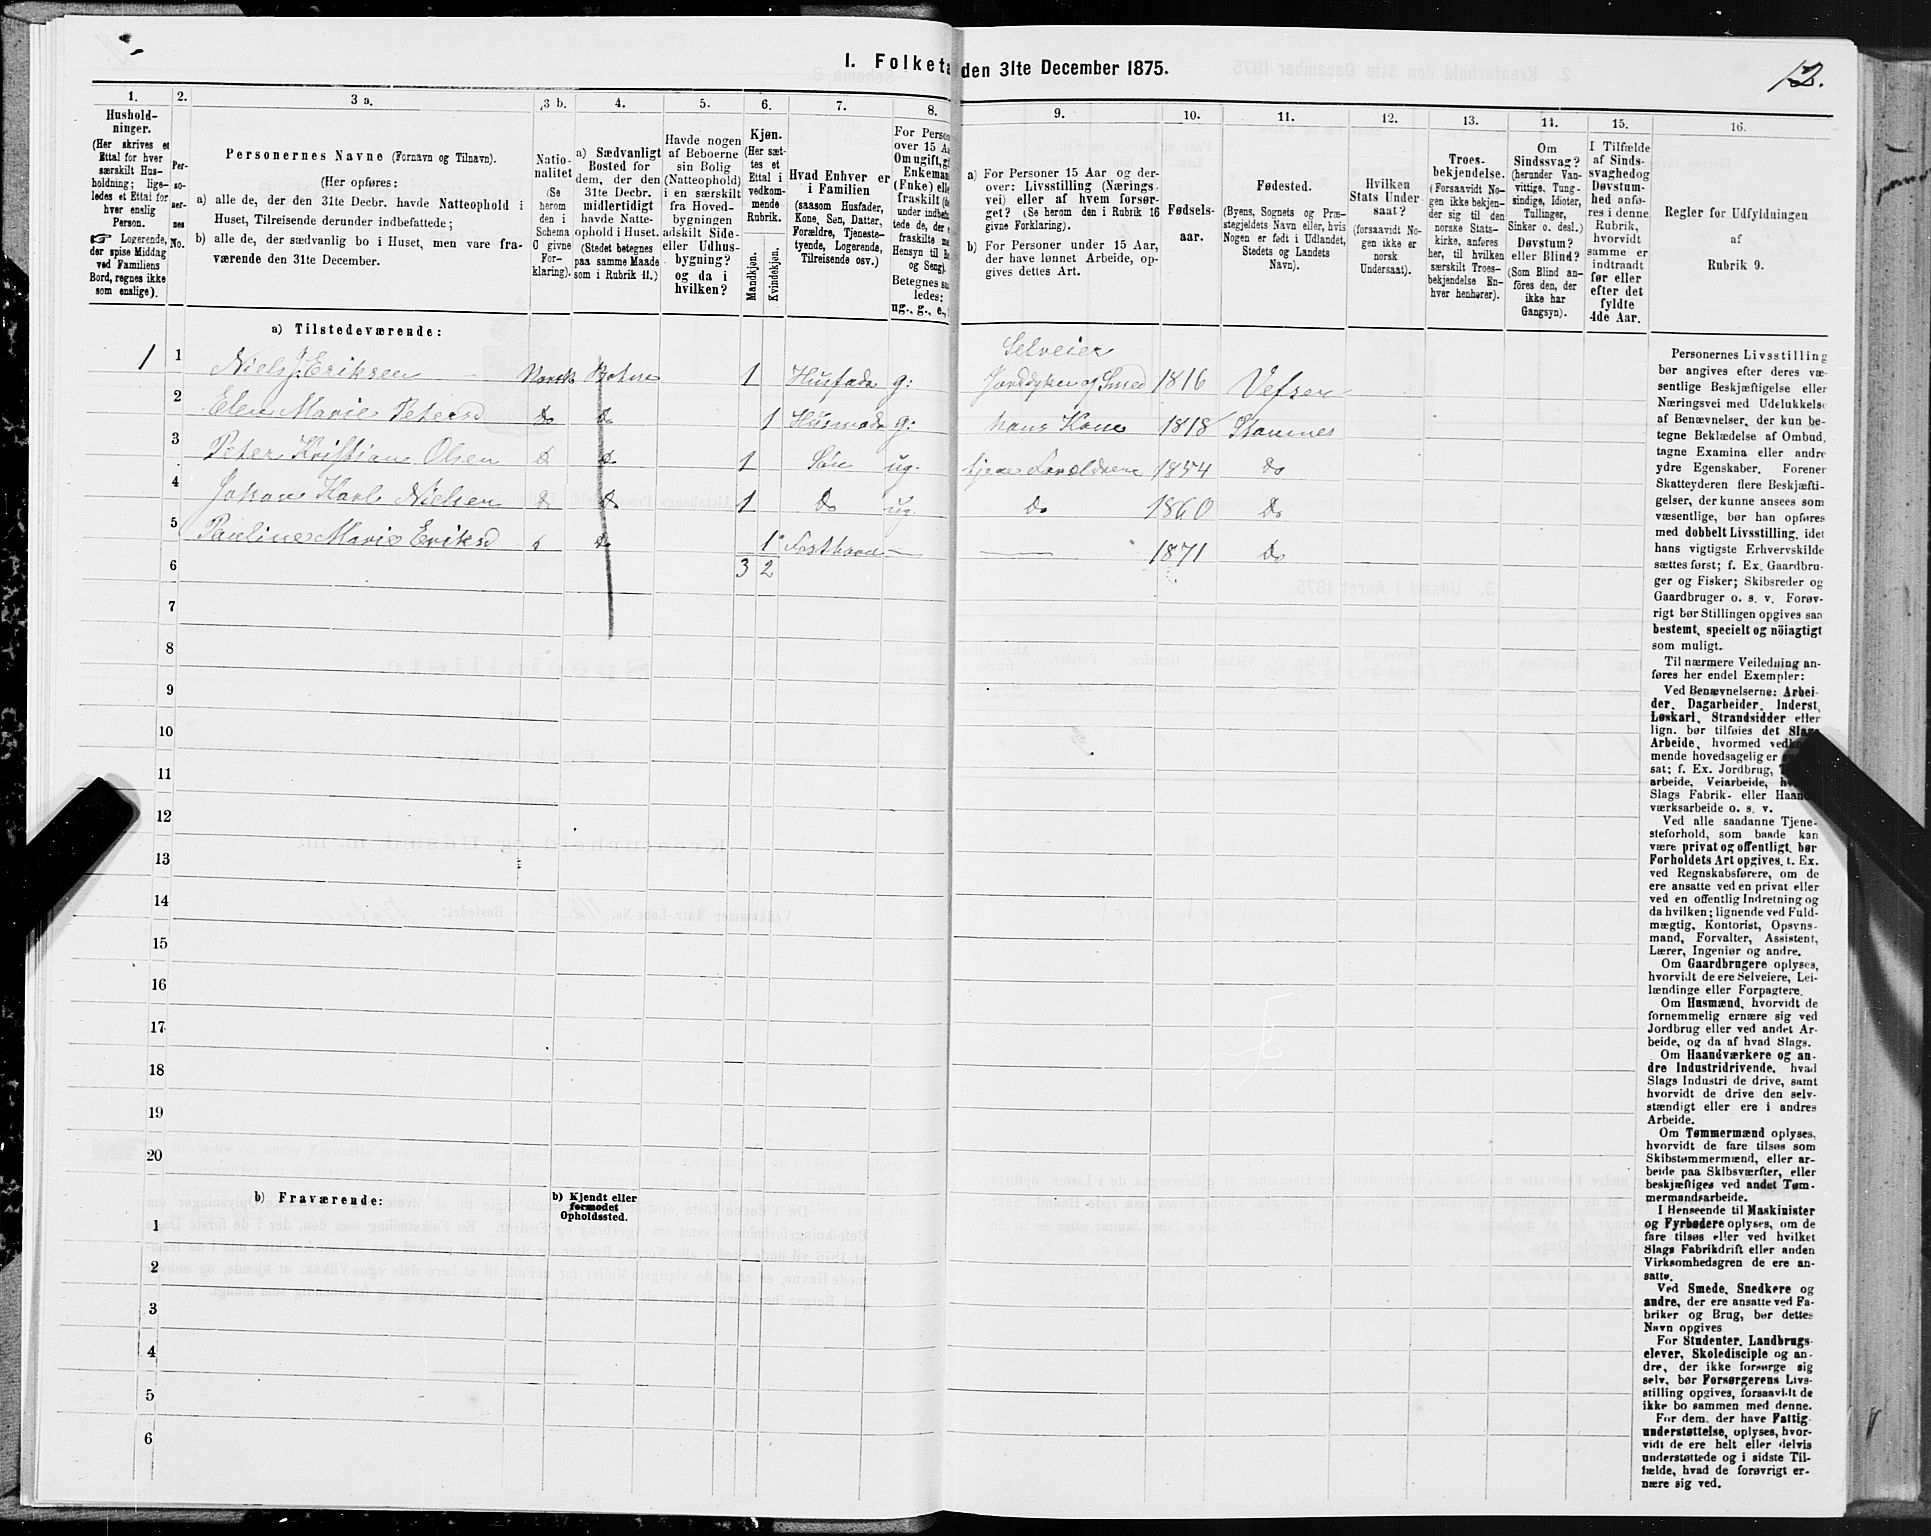 I. Folketa den 31te December 1875.
12.
1.
Hushold-
ninger.
(Her skrives et
Ettal for hver
særskilt Hus-
holdning; lige-
ledes et Ettal for
hver enslig
Person.
Logerende,
der spise Middag
ved Familiens
Bord, regnes ikke
som enslige).
2.
Per-
so-
ner-
nes
No.
3 a.
Personernes Navne (Fornavn og Tilnavn).
(Her opføres:
a) alle de, der den 31te Decbr. havde Natteophold i
Huset, Tilreisende derunder indbefattede;
b) alle de, der sædvanlig bo i Huset, men vare fra-
værende den 31te December.
3 b.
Natio-
nalitet
(Se
herom
den i
Schema
C givne
For-
klaring).
4.
a) Sædvanligt
Bosted for
dem, der den
31te Decbr.
midlertidigt
havde Natte-
ophold i Huset.
(Stedet betegnes
paa samme Maade
som i Rubrik 11.)
5.
Havde nogen
af Beboerne
sin Bolig
(Natteophold)
i en særskilt
fra Hoved-
bygningen
adskilt Side-
eller Udhus-
bygning?
og da i
hvilken?
6.
Kjøn.
(Her sæt-
tes et
Ettal i
vedkom-
mende
Rubrik.
Mandkjøn.
Kvindekjøn.
7.
Hvad Enhver er
i Familien
(saasom Husfader,
Kone, Søn, Datter,
Forældre, Tjeneste-
tyende, Logerende,
Tilreisende osv.)
8.
For Person
over 15 Aa
Om ugift, g
Enkeman
(Enke) elle
fraskilt
under indbe
tede de, der
fraskilte m
Hensyn til Bo
og Seng).
Betegnes saa
ledes:
ug., g., e.,
9.
a) For Personer 15 Aar og der-
over: Livsstilling (Nærings-
vei) eller af hvem forsør-
get? (Se herom den i Rubrik 16
givne Forklaring).
b) For Personer under 15 Aar,
der have lønnet Arbeide, op-
gives dettes Art.
10.
Fødsels-
aar.
11.
Fødested.
(Byens, Sognets og Præ-
stegjeldets Navn eller, hvis
Nogen er født i Udlandet,
Stedets og Landets
Navn).
12.
Hvilken
Stats Under-
saat?
(forsaavidt No-
gen ikke er
norsk
Undersaat).
13.
Troes-
bekjendelse.
(Forsaavidt No-
gen ikke bekjen-
der sig til den
norske Stats-
kirke, anføres
her, til hvilken
særskilt Troes-
bekjendelse En-
hver henhører).
14.
Om
Sindssvag?
(herunder Van-
vittige, Tung-
sindige, Idioter,
Tullinger,
Sinker o. desl.)
Døvstum?
eller Blind?
(Som Blind an-
føres den, der
ikke har
Gangsyn).
15.
I Tilfælde
af Sinds-
svaghed og
Døvstum-
hed anfø-
res i denne
Rubrik,
hvorvidt
samme er
indtraadt
før eller
efter det
fyldte
4de Aar.
16.
Regler for Udfyldningen
af
Rubrik 9.
a) Tilstedeværende:
Selveier
1 1 Niels J. Eriksen Norsk 1 Husfader g: Jorddyrker og Smed 1816 Vefsen
2 Elen Marie Petersd Do Do 1 Husmoder g: hans Kone 1818 Stamnes
3 Peter Kristian Olsen D Do 1 Søn ug. tjener Forældrene 1854 Do
4 Johan Karl Nielsen D Do 1 Do ug. Do 1860 Do
5 Pauline Marie Eriksd d Do 1 Fosterbarn — — 1871 Do
6 3 2
7
8
9
10
11
12
13
14
15
16
17
18
19
20
b) Fraværende:
b) Kjendt eller
formodet
Opholdssted.
1
2
3
4
5
6
Personernes Livsstilling
bør angives efter deres væ-
sentlige Beskjæftigelse eller
Næringsvei med Udelukkelse
af Benævnelser, der kun be-
tegne Beklædelse af Ombud,
tagne Examina eller andre
ydre Egenskaber. Forener
Skatteyderen flere Beskjæfti-
gelser, der kunne ansees som
væsentlige, bør han opføres
med dobbelt Livsstilling, idet
hans vigtigste Erhvervskilde
sættes først; f. Ex. Gaardbru-
ger og Fisker; Skibsreder og
Gaardbruger o. s. v. Forøv-
rigt bør Stillingen opgives saa
bestemt, specielt og nöiagtigt
som muligt.
Til nærmere Veiledning an-
føres her endel Exempler:
Ved Benævnelserne: Arbei-
der, Dagarbeider, Inderst,
Løskarl, Strandsidder eller
lign. bør tilføies det Slags
Arbeide, hvormed vedkom-
mende hovedsagelig er
sat; f. Ex. Jordbrug,
arbeide, Veiarbeide, hv
Slags Fabrik- eller Haand-
værksarbeide o. s. v.
Ved alle saadanne Tjene-
steforhold, som baade kan
være privat og offentligt, bør
Forholdets Art opgives, t. Ex.
ved Regnskabsførere, om de
ere ansatte ved en privat eller
ved en offentlig Indretning og
da hvilken; lignende ved Fuld-
mægtig, Kontorist, Opsyns-
mand, Forvalter, Assistent,
Lærer, Ingeniør og andre.
Om Gaardbrugere oplyses,
hvorvidt de ere Selveiere, Lei-
lændinge eller Forpagtere.
Om Husmænd, hvorvidt de
fornemmelig ernære sig ved
Jordbrug eller ved andet Ar-
beide, og da af hvad Slags.
Om Haandværkere og an-
dre Industridrivende, hvad
Slags Industri de drive, samt
hvorvidt de drive den selv-
stændigt eller ere i andres
Arbeide.
Om Tømmermænd oplyses,
hvorvidt de fare tilsøs som
Skibstømmermænd, eller ar-
beide paa Skibsværfter, eller
beskjæftiges ved andet Tøm-
mermandsarbeide.
I Henseende til Maskinister
og Fyrbødere oplyses, om de
fare tilsøs eller ved hvilket
Slags Fabrikdrift eller anden
Virksomhedsgren de ere an-
satte.
Ved Smede, Snedkere og
andre, der ere ansatte ved Fa-
briker og Brug, bør dettes
Navn opgives
For Studenter, Landbrugs-
elever, Skoledisciple og an-
dre, der ikke forsørge sig
selv, bør Forsørgerens Livs-
stilling opgives, forsaavidt de
ikke bo sammen med denne.
For dem, der have Fattig-
understøttelse, oplyses, hvor-
vidt de ere helt eller delvis
understøttede og i sidste Til-
fælde, hvad de forøvrigt er-
nære sig ved.